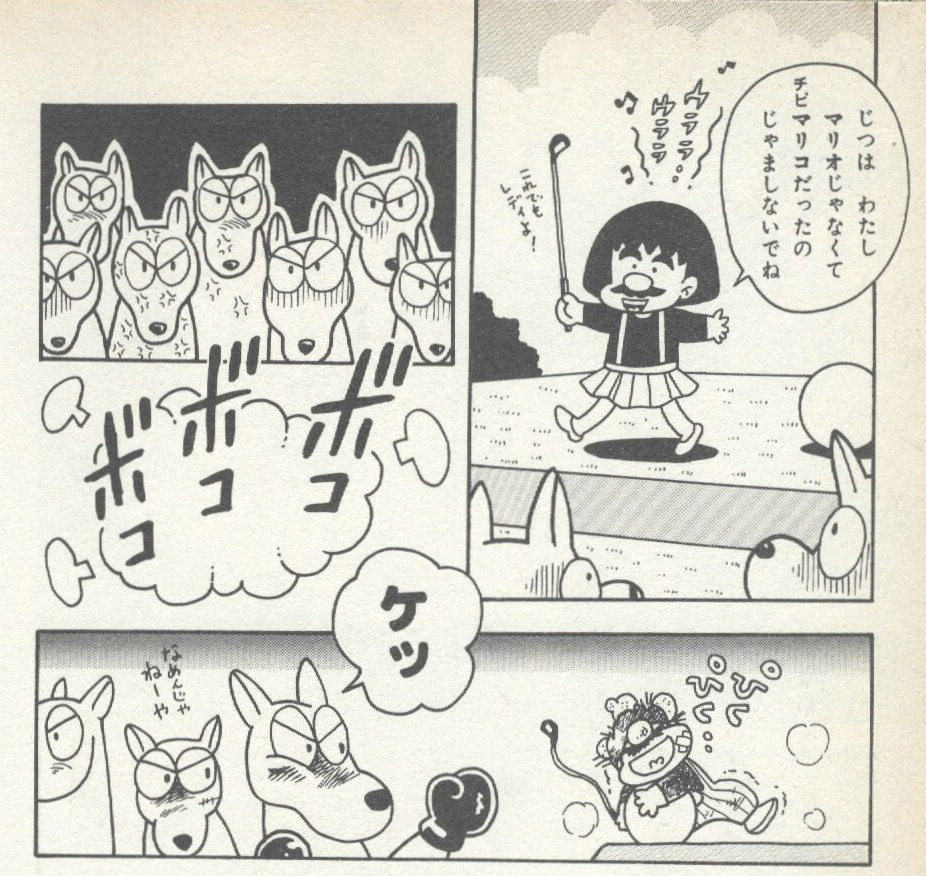 じつは わたし
マリオじゃなくて
チビマリコだったの
じゃましないでね
ウララ
ウララ。
これでも
レディよ!
ボコ
ボコ
ボコ
ケッ
なめんじゃ
ねーや
ひて
ひて